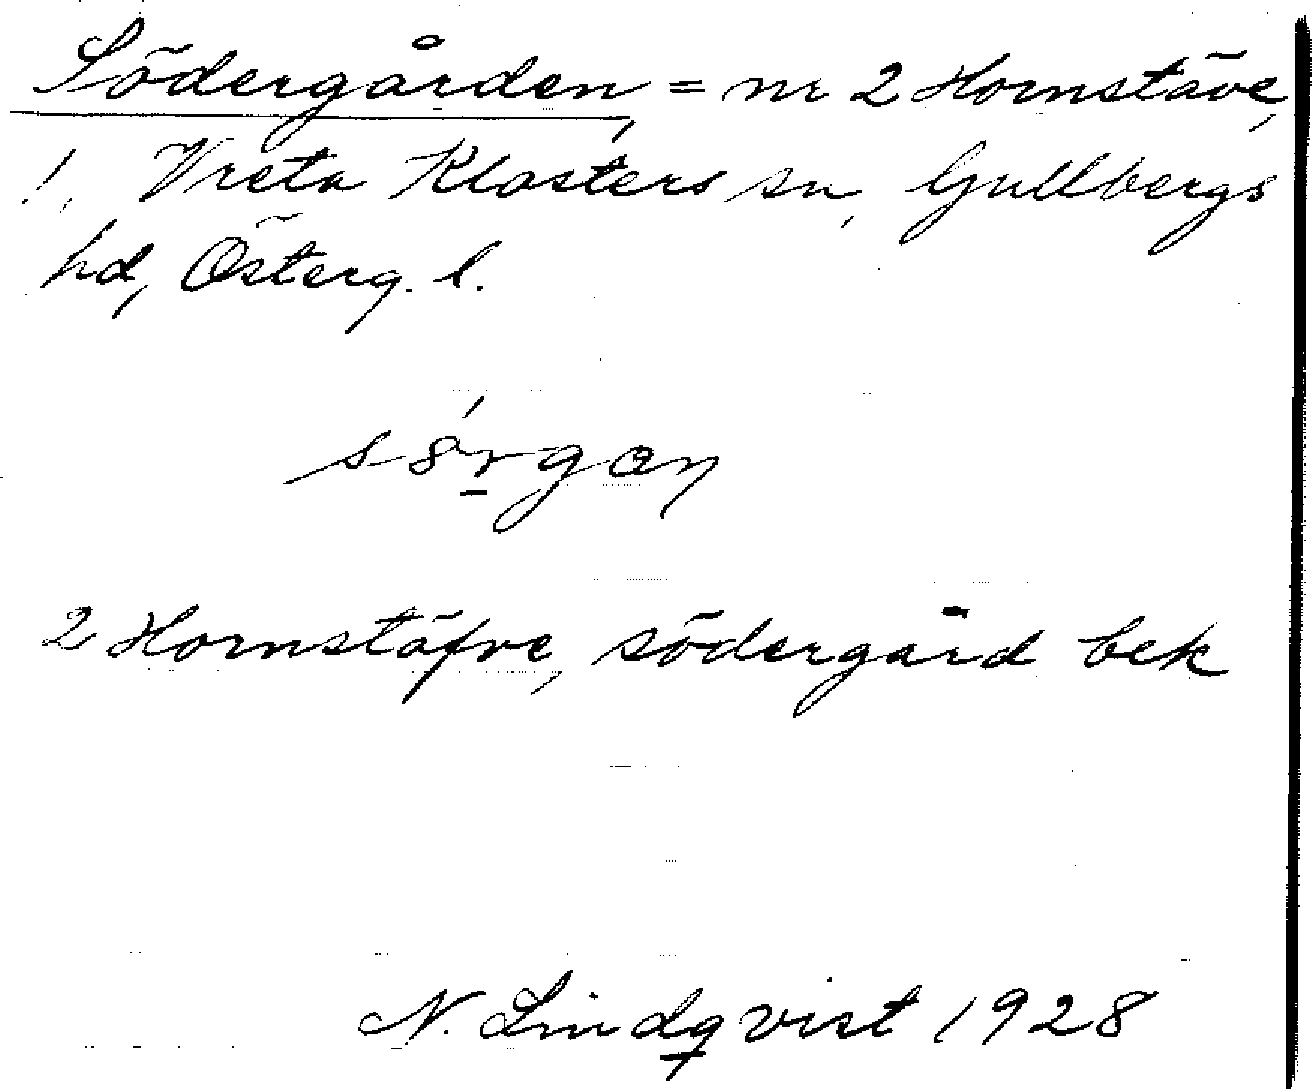 Södergården, = nr 2 Hornstäve,
!, Vreta Klosters sn, Gullbergs
hd, Österg. l.
sörgan
2 Hornstäfve, södergård bek
N. Lindqvist 1928